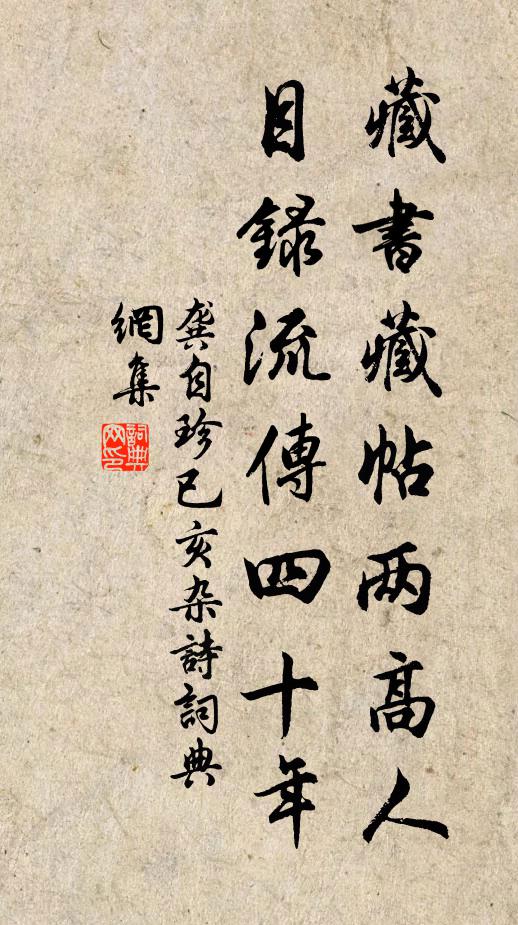 藏書藏帖两高人
目錄流傳四十年
龚自珍已亥杂詩詞典
網集
詞典
网印